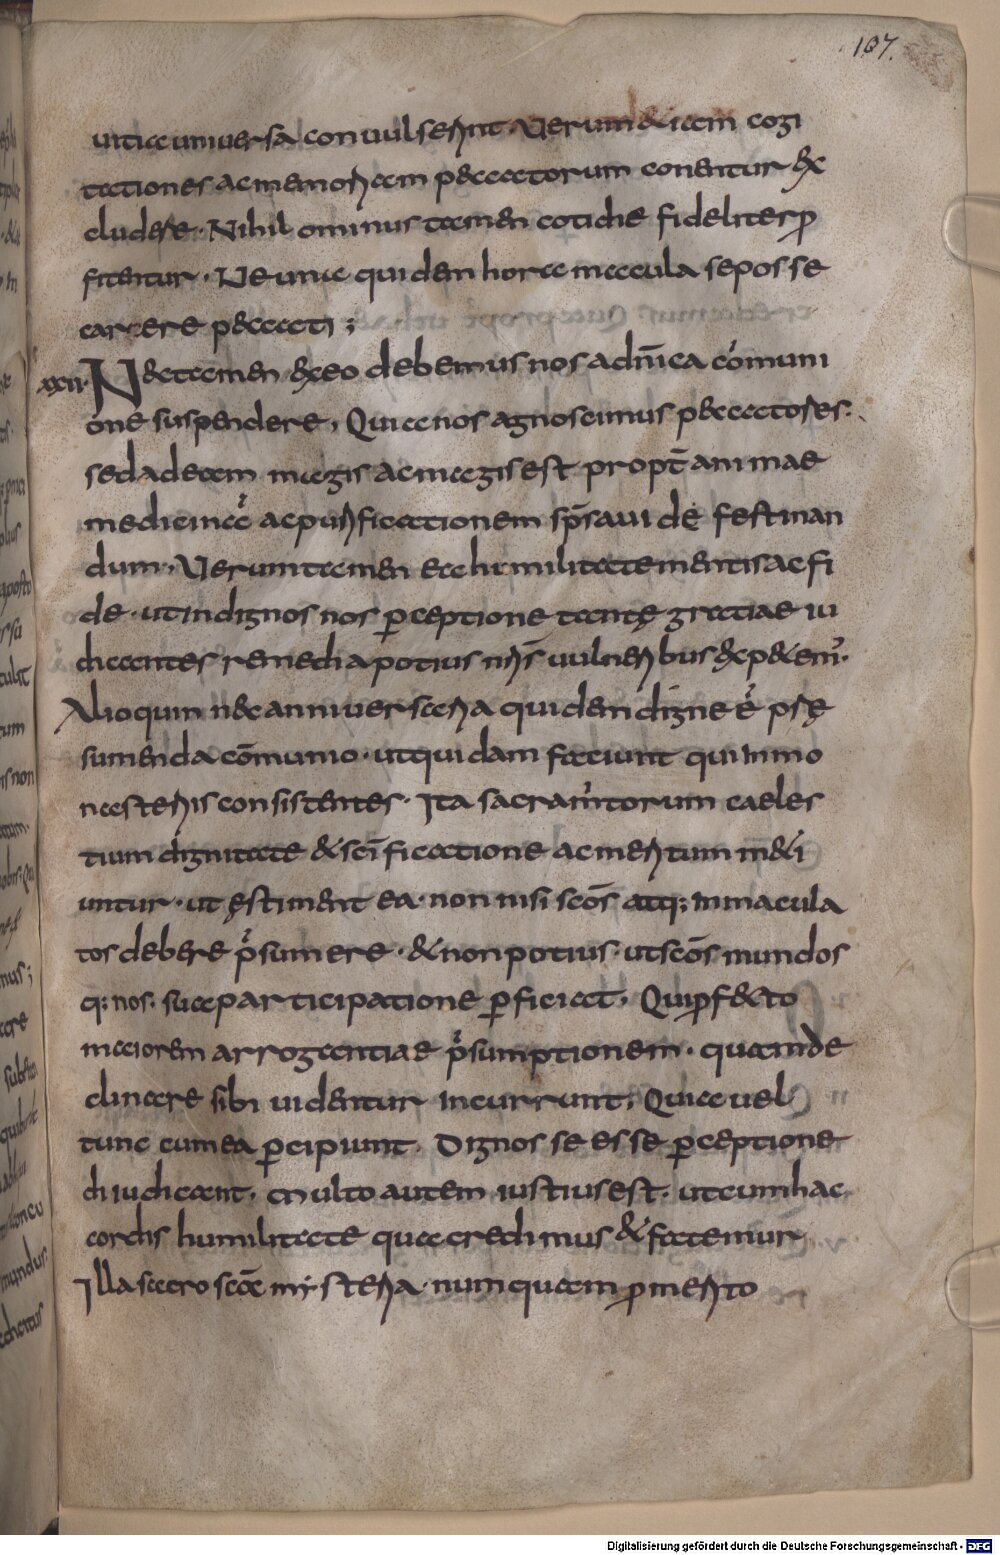 107.
uitia uniuersa conuulserint. Verum etiam cogi
tationes ac memoriam peccatorum conentur ex
cludere. Nihil ominus tamen cotidie fideliter p̱
fitentur. Ne una quidem hora macula se posse
carere peccati;
XXII. Nec tamen ex eo debemus nos a dñica cōmuni
one suspendere, Quia nos agnoscimus peccatores.
sed ad eam magis ac magis est propt̄ animae
medicinā ac purificationem sp̄s auide festinan
dum. Verumtamen ea humilitate mentis ac fi
de. ut indignos nos p̱ceptione tantę gratiae iu
dicantes remedia potius nr̄is uulneribus expetem̾.
Alioquin nec anniuersaria quidem digne ē p̄sę
sumenda cōmunio. ut quidam faciunt qui in mo
nasteriis consistentes. Ita sacram̄torum caeles
tium dignitate & sc̄ificatione ac meritum meti
untur. ut ęstiment ea. non nisi sc̄os atq; inmacula
tos debere p̄sumere. & non potius. ut sc̄os mundos
q; nos. sua participatione p̱ficiat. Qui p̱fecto
maiorem arrogantiae p̄sumptionem. quam de
clinare sibi uidentur incurrunt; Quia uel
tunc cum ea p̱cipiunt. Dignos se esse p̱ceptione
diiudicant. Multo autem iustius est. ut cum hac
cordis humilitate qua credimus & fatemur
Illa sacrosc̄a mysteria. numquam p̱ merito